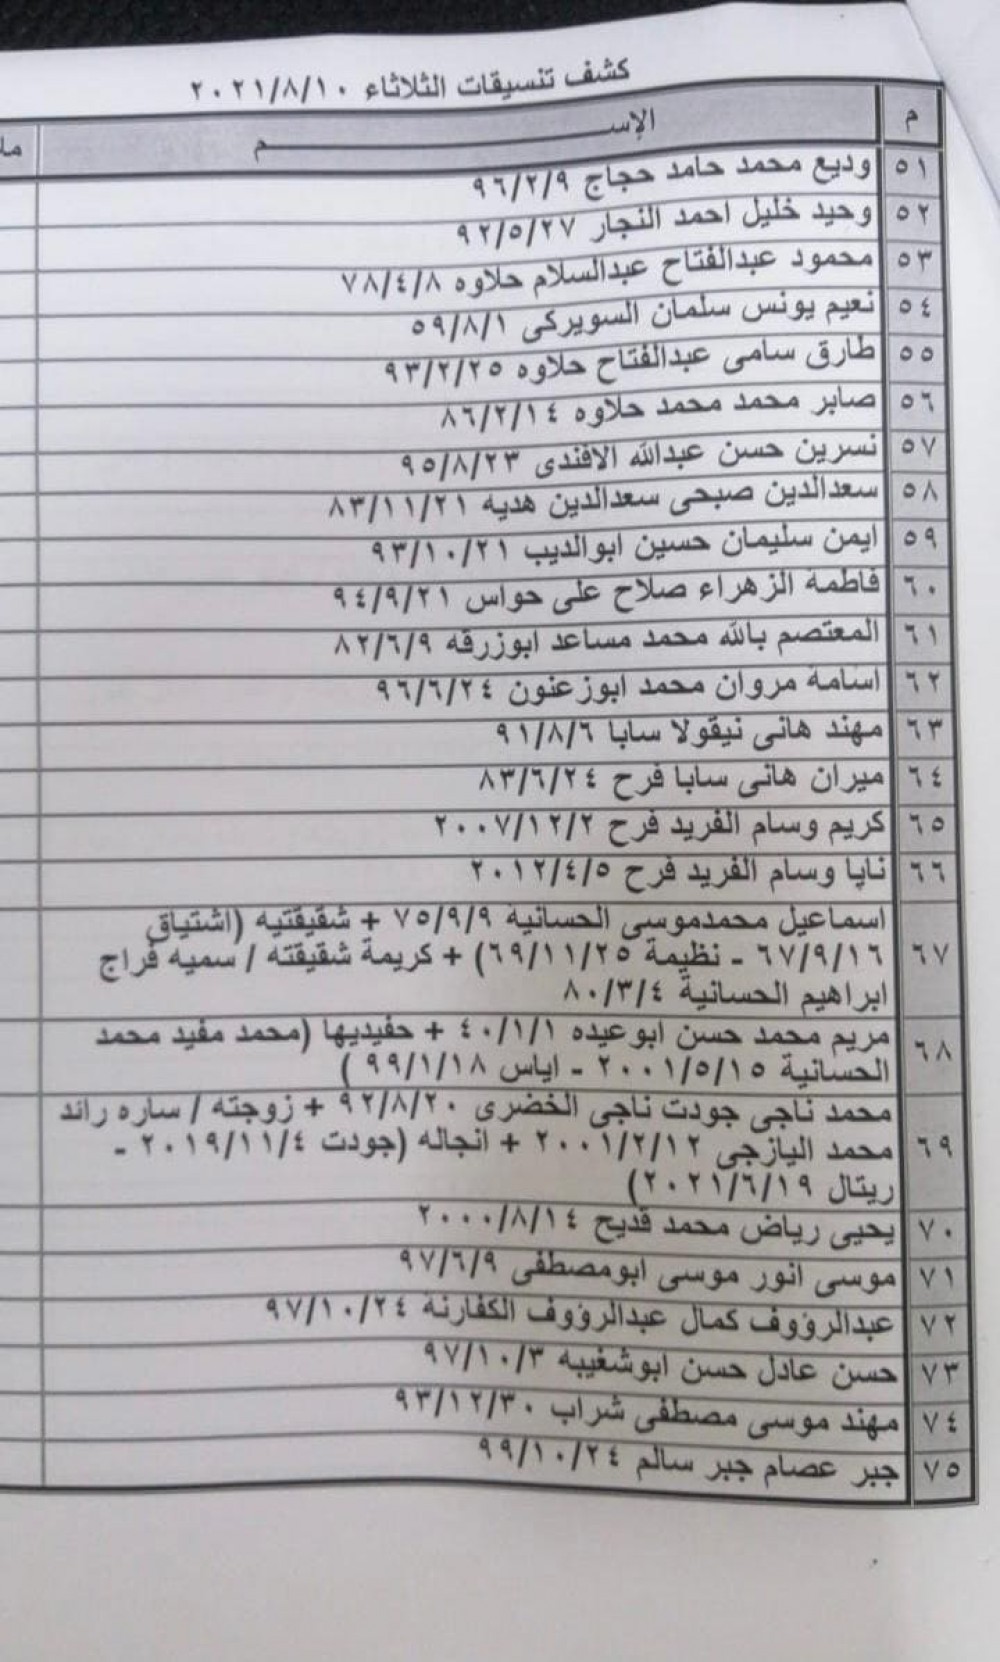 كشف تنسيقات الثلاثاء ٢٠٢١/٨/١٠
م الإســـــــــــــم
٥١ وديع محمد حامد حجاج ٩٦/٢/٩
٥٢ وحيد خليل احمد النجار ٩٢/٥/٢٧
٥٣ محمود عبدالفتاح عبدالسلام حلاوه ٧٨/٤/٨
٥٤ نعيم يونس سلمان السويركى ٥٩/٨/١
٥٥ طارق سامى عبدالفتاح حلاوه ٩٣/٢/٢٥
٥٦ صابر محمد محمد حلاوه ٨٦/٢/١٤
٥٧ نسرين حسن عبدالله الافندى ٩٥/٨/٢٣
٥٨ سعدالدين صبحى سعدالدين هديه ٨٣/١١/٢١
٥٩ ايمن سليمان حسين ابوالديب ٩٣/١٠/٢١
٦٠ فاطمة الزهراء صلاح على حواس ٩٤/٩/٢١
٦١ المعتصم بالله محمد مساعد ابوزرقه ٨٢/٦/٩
٦٢ اسامة مروان محمد ابوزعنون ٩٦/٦/٢٤
٦٣ مهند هانى نيقولا سابا ٩١/٨/٦
٦٤ ميران هانى سابا فرح ٨٣/٦/٢٤
٦٥ كريم وسام الفريد فرح ٢٠٠٧/١٢/٢
٦٦ نايا وسام الفريد فرح ٢٠١٢/٤/٥
٦٧ اسماعيل محمدموسى الحسانية ٧٥/٩/٩ + شقيقتيه (اشتياق
٦٧/٩/١٦ - نظيمة ٦٩/١١/٢٥) + كريمة شقيقته / سميه فراج
ابراهيم الحسانية ٨٠/٣/٤
٦٨ مريم محمد حسن ابوعيده ٤٠/١/١ + حفيديها (محمد مفيد محمد
الحسانية ٢٠٠١/٥/١٥ - اياس ٩٩/١/١٨ )
٦٩ محمد ناجى جودت ناجى الخضرى ٩٢/٨/٢٠ + زوجته / ساره رائد
محمد اليازجى ٢٠٠١/٢/١٢ + انجاله (جودت ٢٠١٩/١١/٤ -
ريتال ٢٠٢١/٦/١٩)
٧٠ يحيى رياض محمد قديح ٢٠٠٠/٨/١٤
٧١ موسى انور موسى ابومصطفى ٩٧/٦/٩
٧٢ عبدالرؤوف كمال عبدالرؤوف الكفارنة ٩٧/١٠/٢٤
٧٣ حسن عادل حسن ابوشغيبه ٩٧/١٠/٣
٧٤ مهند موسى مصطفى شراب ٩٣/١٢/٣٠
٧٥ جبر عصام جبر سالم ٩٩/١٠/٢٤